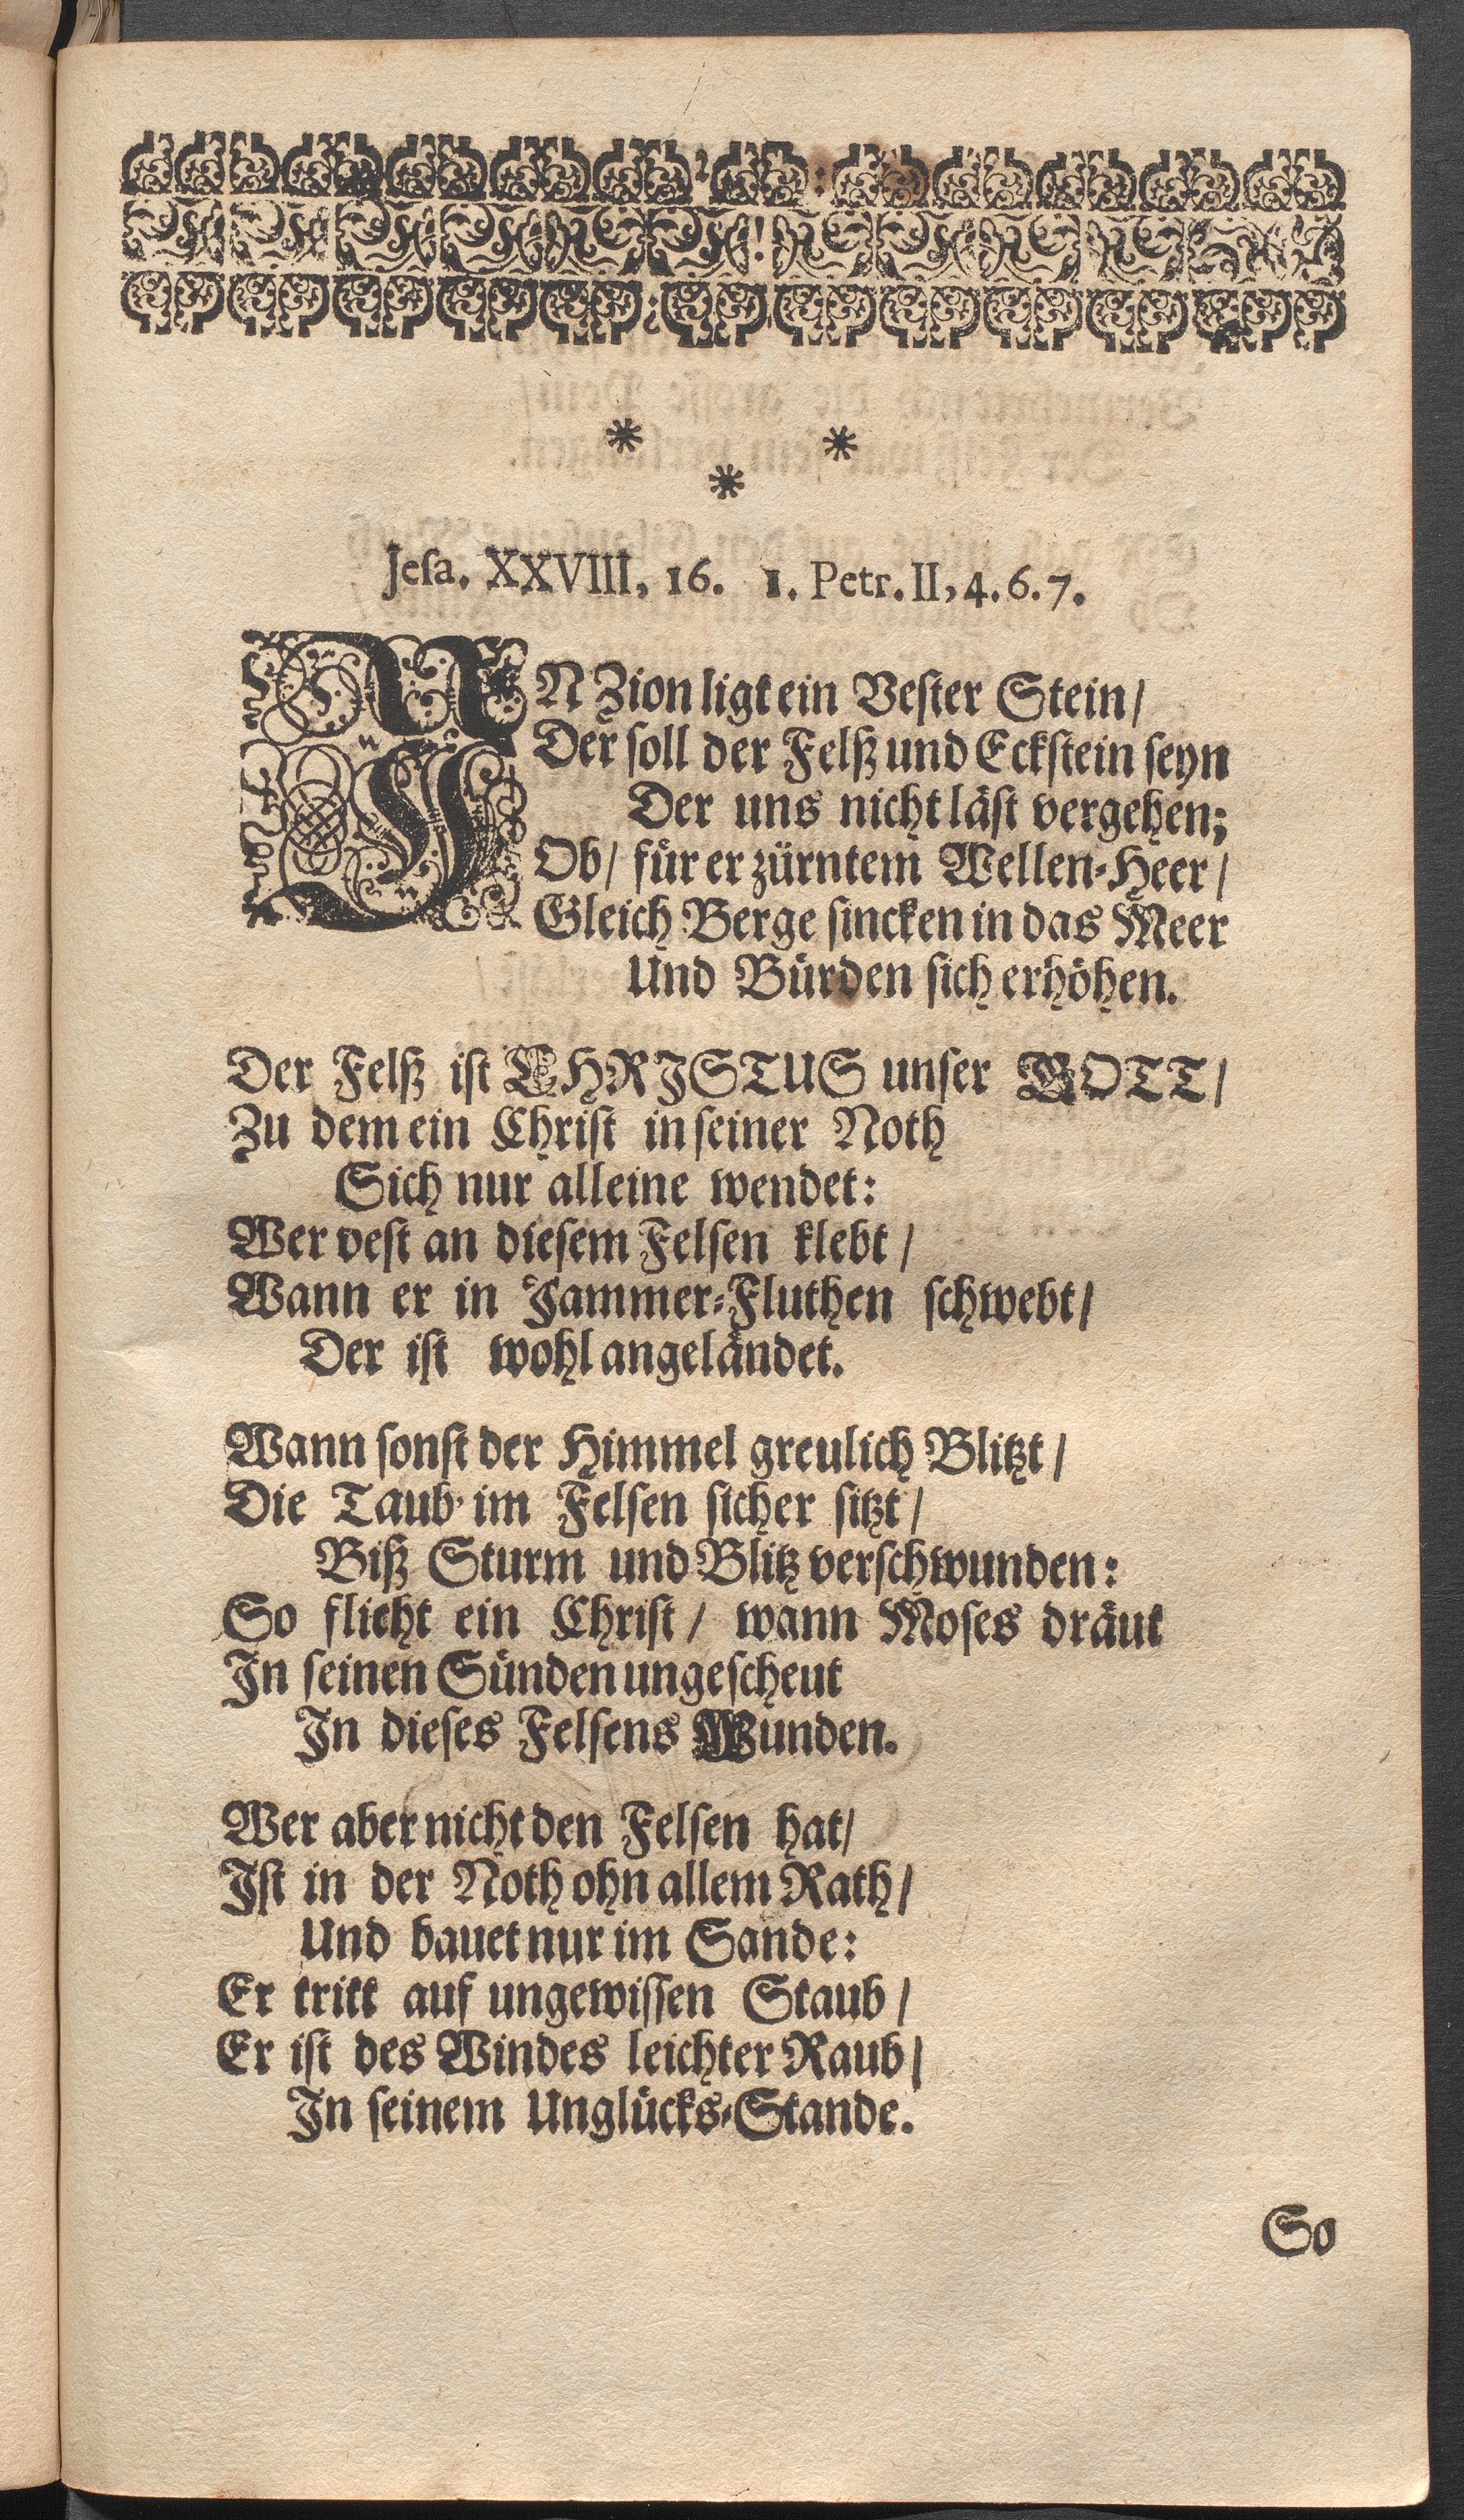 Jeſa. XXVIII, 16. 1. Petr. II, 4. 6. 7.
IN Zion ligt ein Veſter Stein/
Der ſoll der Felß und Eckſtein ſeyn
Der uns nicht läſt vergehen;
Ob/ für erzürntem Wellen-Heer/
Gleich Berge ſincken in das Meer
Und Bürden ſich erhöhen.
Der Felß iſt CHRJSTUS unſer GOTT/
Zu dem ein Chriſt in ſeiner Noth
Sich nur alleine wendet:
Wer veſt an dieſem Felſen klebt/
Wann er in Jammer-Fluthen ſchwebt/
Der iſt wohl angeländet.
Wann ſonſt der Himmel greulich Blitzt/
Die Taub' im Felſen ſicher ſitzt/
Biß Sturm und Blitz verſchwunden:
So flieht ein Chriſt/ wann Moſes dräut
Jn ſeinen Sünden ungeſcheut
Jn dieſes Felſens Wunden.
Wer aber nicht den Felſen hat/
Jſt in der Noth ohn allem Rath/
Und bauet nur im Sande:
Er tritt auf ungewiſſen Staub/
Er iſt des Windes leichter Raub/
Jn ſeinem Unglücks-Stande.
So